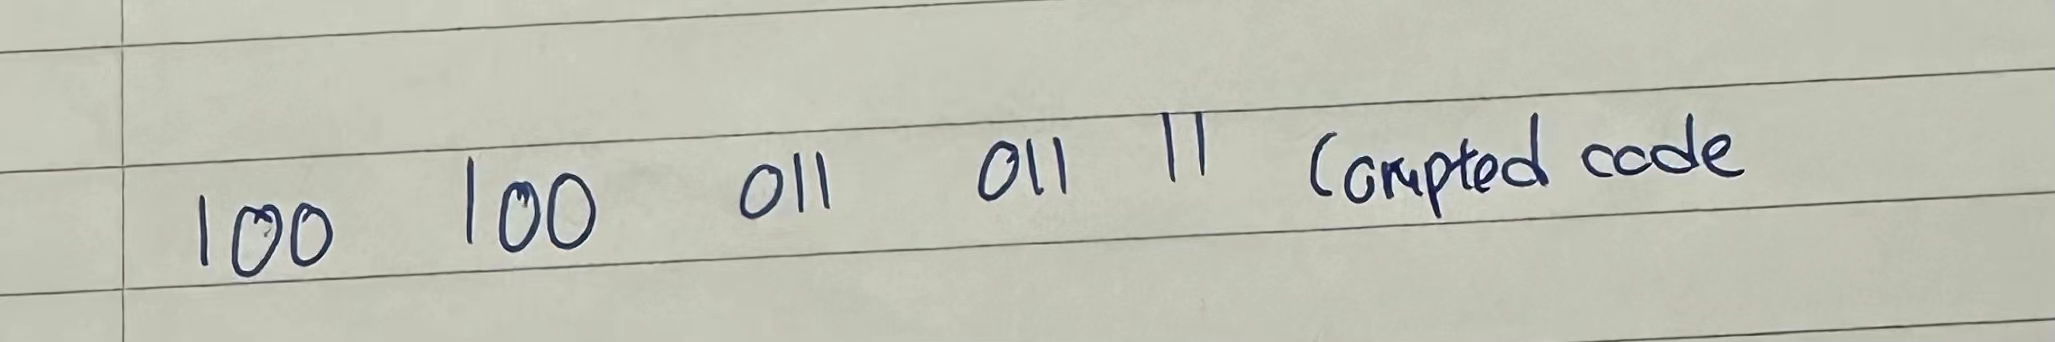 100 100 011 011 11 Corrupted code